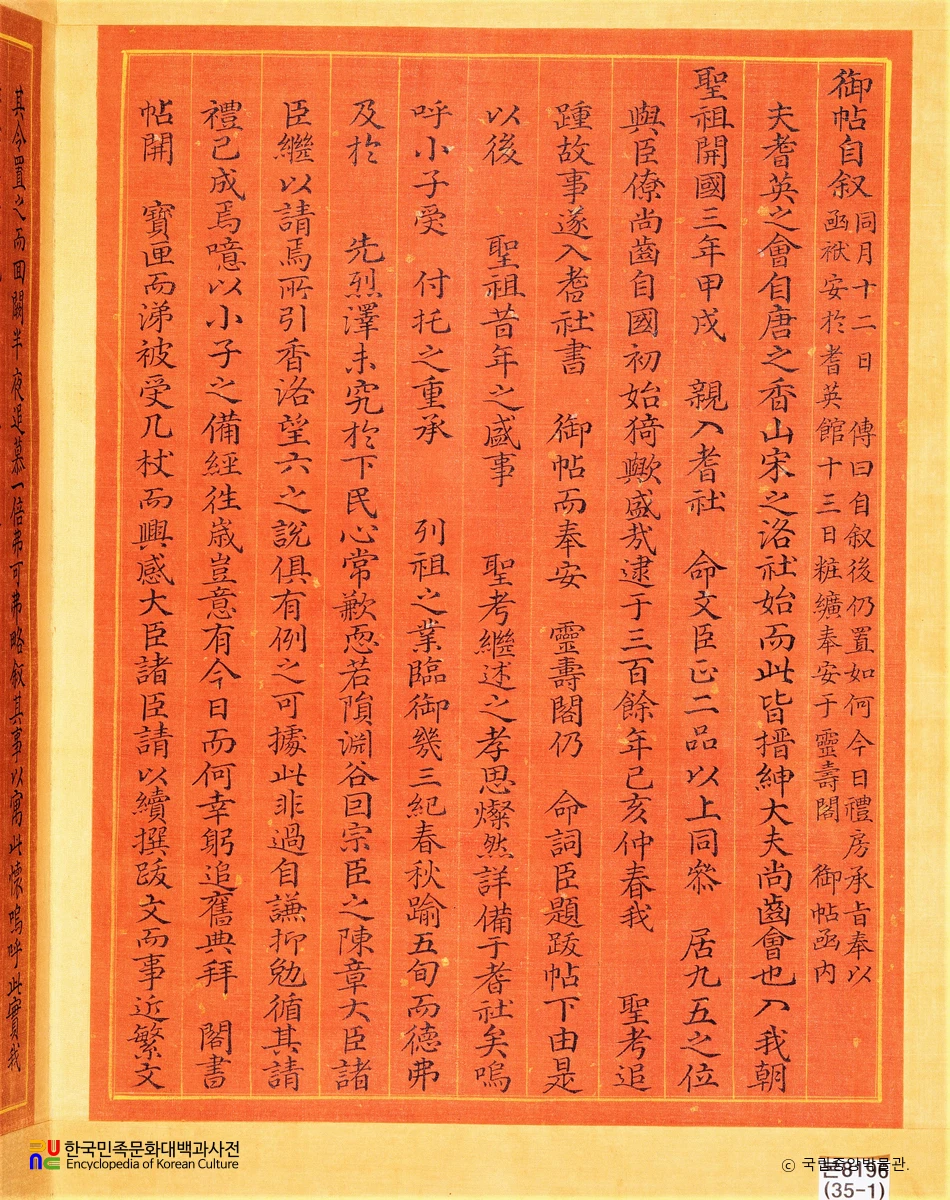 御帖自叙 同月十二日 傳曰自叙後仍置如何今日禮房承旨奉以
函袱安於耆英館十三日粧䌙奉安于靈壽閣 御帖函內
夫耆英之會自唐之香山宋之洛社始而此皆搢紳大夫尚齒會也入我朝
聖祖開國三年甲戌 親入耆社 命文臣正二品以上同叅 居九五之位
與臣僚尚齒自國初始猗歟盛㢤逮于三百餘年己亥仲春我 聖考追
踵故事遂入耆社書 御帖而奉安 靈壽閣仍 命詞臣題跋帖下由是
以後 聖祖昔年之盛事 聖考繼述之孝思燦然詳備于耆社矣嗚
呼小子受 付托之重承 列祖之業臨御幾三紀春秋踰五旬而德弗
及於 先烈澤未究於下民心常歉恧若隕淵谷曰宗臣之陳章大臣諸
臣繼以請焉所引香洛望六之說俱有例之可據此非過自謙抑勉循其請
禮已成焉噫以小子之備經徃歲豈意有今日而何幸躬追舊典拜 閣書
帖開 寶匣而涕被受几杖而興感大臣諸臣請以續撰跋文而事近繁文
其令置之而回闕半夜追慕一倍弗可弗略叙其事以寓此懷嗚呼此實我
한국민족문화대백과사전
Encyclopedia of Korean Culture
© 국립중앙박물관.
본8196
(35-1)